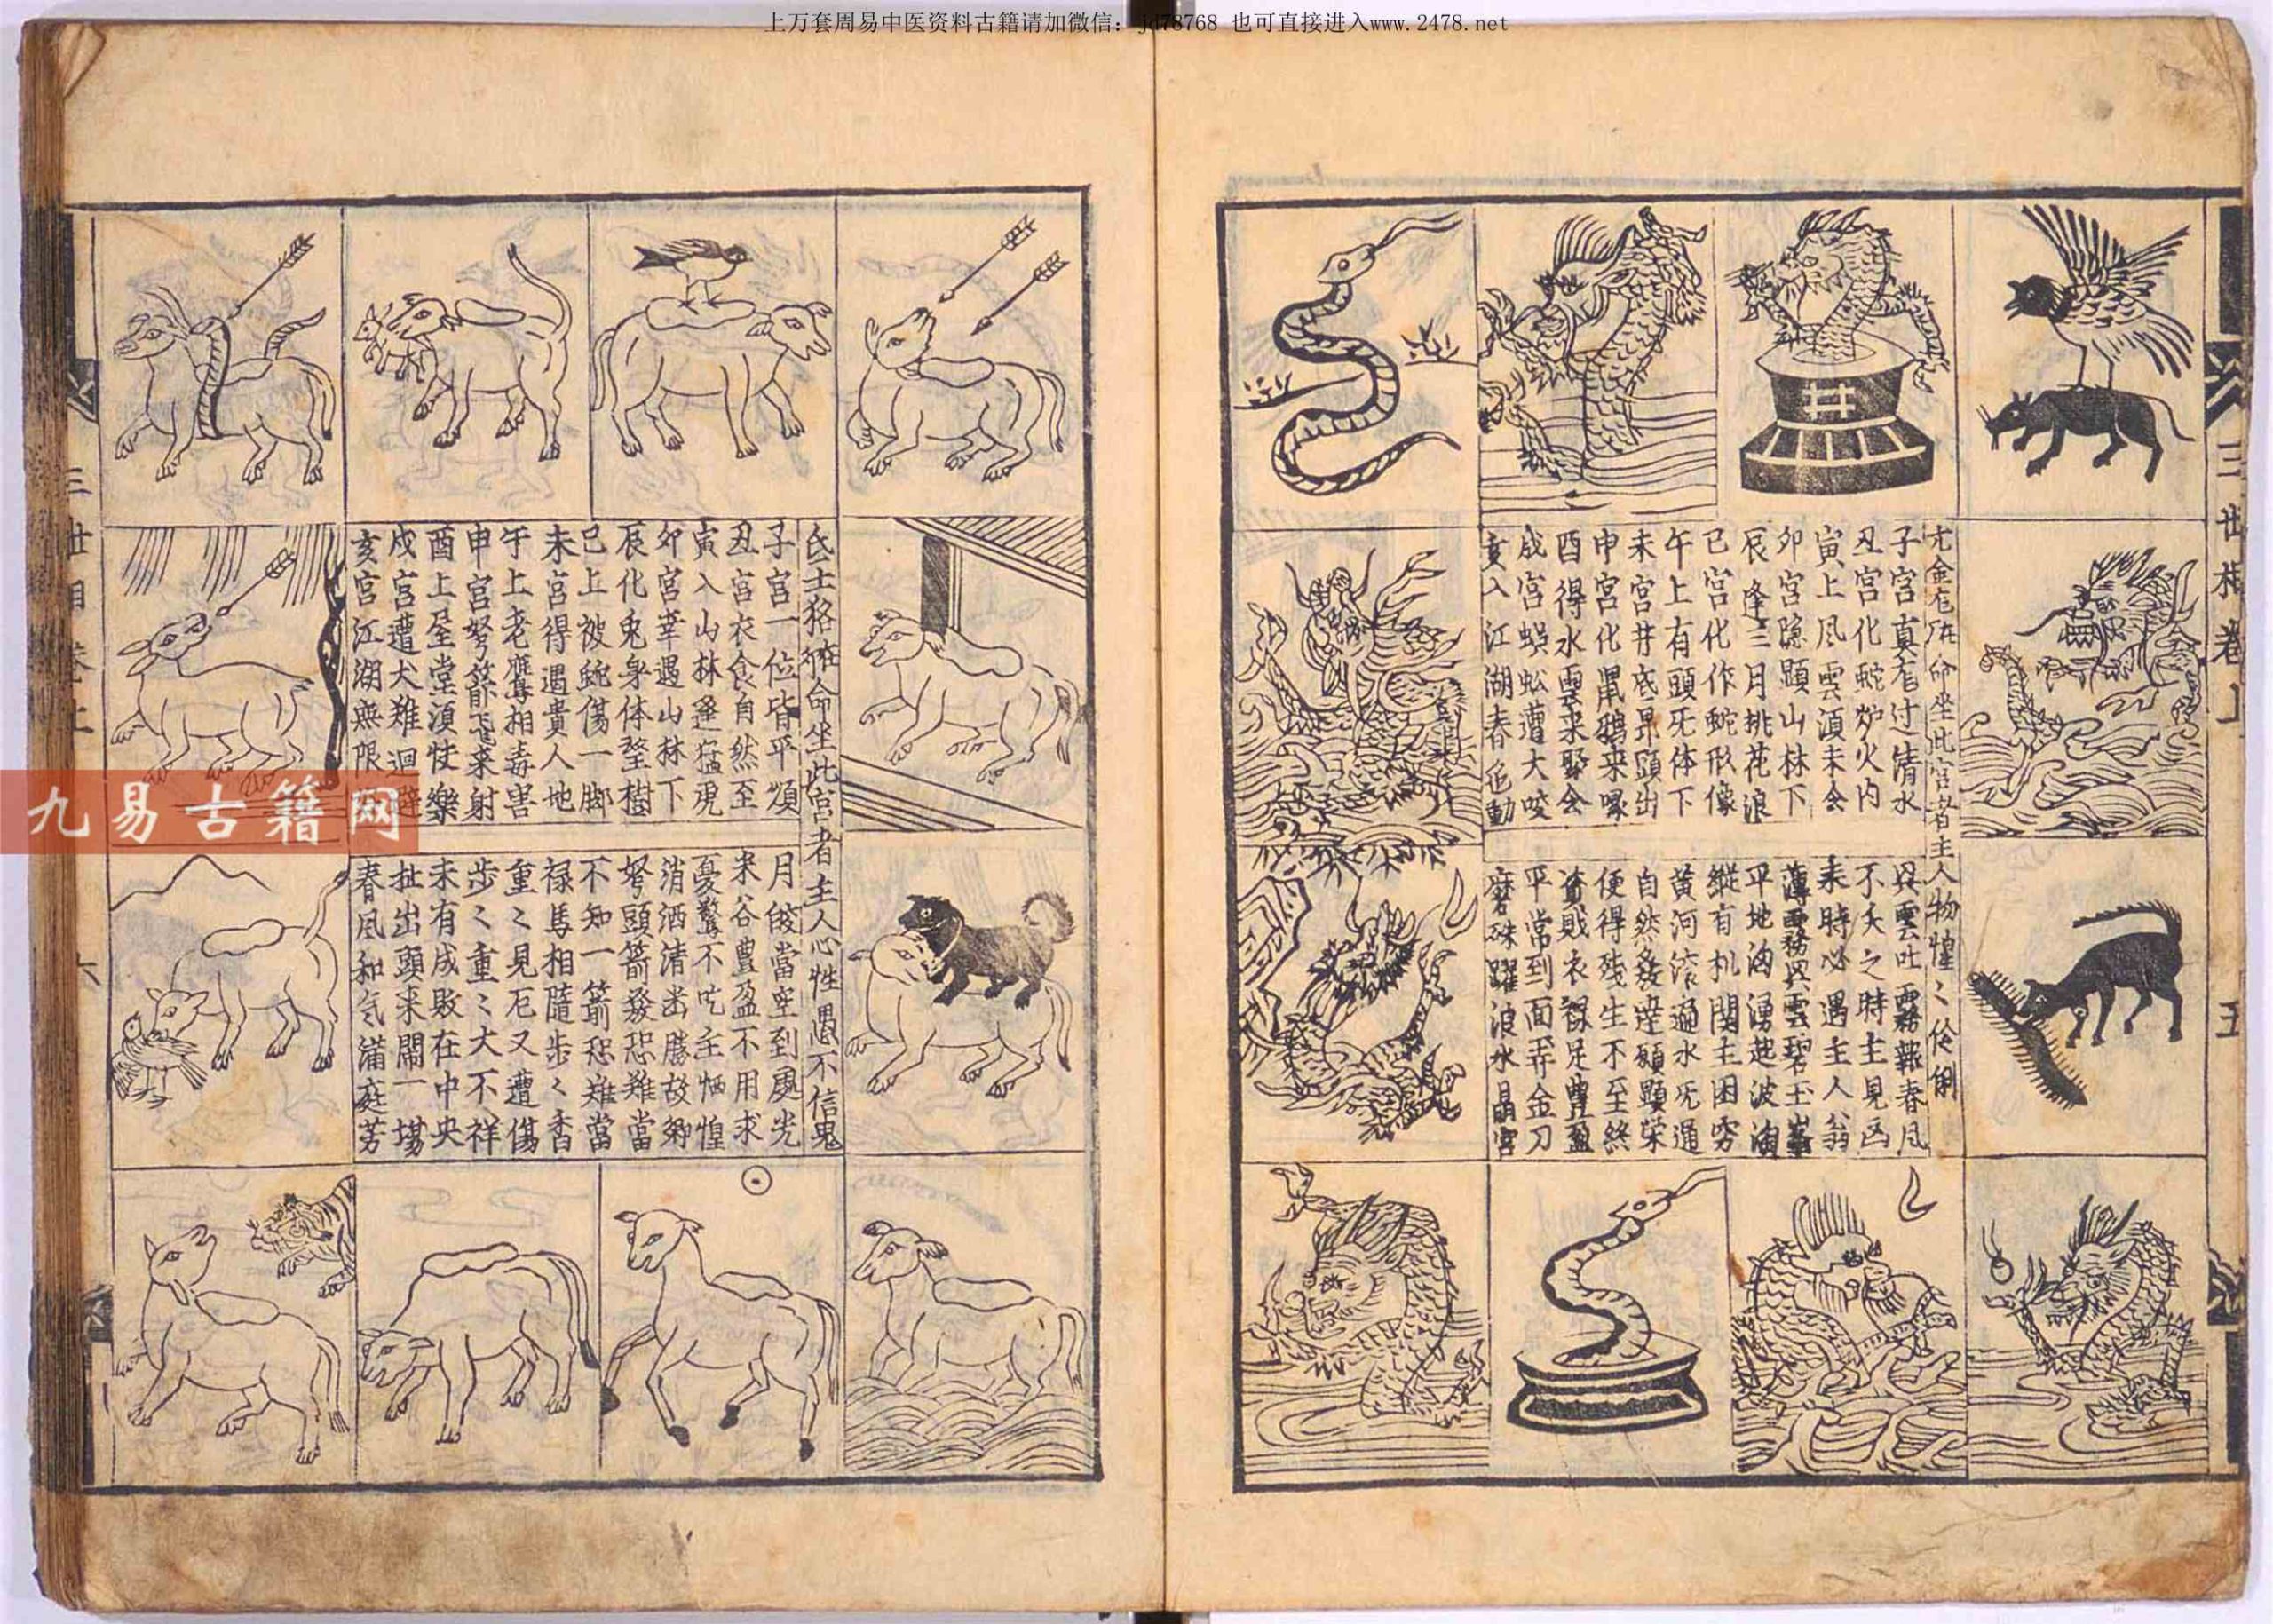 上万套周易中医资料古籍请加微信：jd78768 也可直接进入www.2478.net
三世相卷上
五
亢金龙 命坐此宮者主人物惶〻伶俐
子宮真龙过清水
丑宮化蛇炉火内
寅上风雲湏未会
卯宮隐顕山林下
辰逢三月桃花浪
巳宮化作蛇形像
午上有頭旡体下
未宮井底昂頭出
申宮化鼠鴉来喙
酉得水雲来聚会
戌宮蜈蚣遭犬咬
亥入江湖春色動
興雲吐霧報春风
不久之時主見凶
未時必遇主人翁
薄霧興雲碧玉峯
平地洶湧起波濤
縱有机関主困穷
黄河滚過水旣通
自然發達顕榮
便得残生不至終
貧賎衣禄足豊盈
平常到面弄金刀
珠躍浪水晶宮
氐土狢 命坐此宮者主人心性愚不信鬼
子宮一位皆平順
丑宮衣食自然至
寅入山林逢猛虎
卯宮幸遇山林下
辰化兎身体堅樹
巳上被蛇傷一脚
未宮得遇貴人地
午上老鷹相毒害
申宮弩箭飞来射
酉上屋堂湏快樂
戌宮遭犬難迴避
亥宮江湖無限
月皎當空到處光
米谷豊盈不用求
憂驚不吃主恓惶
消洒清出勝故鄉
弩頭箭發恐難當
不知一箭恐难當
禄馬相隨步〻香
重〻見厄又遭傷
步〻重〻大不祥
未有成敗在中央
扯出頭来鬧一場
春风和气滿庭芳
三世相卷上
六
九易古籍网